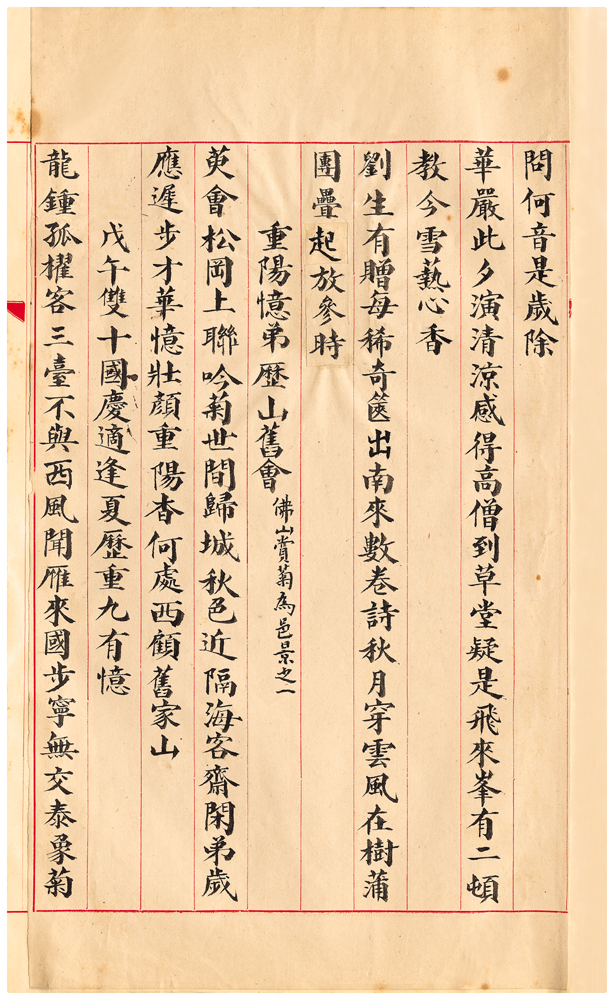 問何音是歲除
華嚴此夕演清涼感得高僧到草堂疑是飛來峯有二頓
教今雪藝心香
劉生有贈每稀奇篋出南來數卷詩秋月穿雲風在樹蒲
團疊起放參時
重陽憶弟歷山舊會佛山賞菊為邑景之一
萸會松岡上聯吟菊世間歸城秋色近隔海客齋閑弟歲
應遲步才華憶壯顏重陽杳何處西顧舊家山
戊午雙十國慶適逢夏歷重九有憶
龍鍾孤櫂客三臺不與西風聞雁來國步寧無交泰象菊